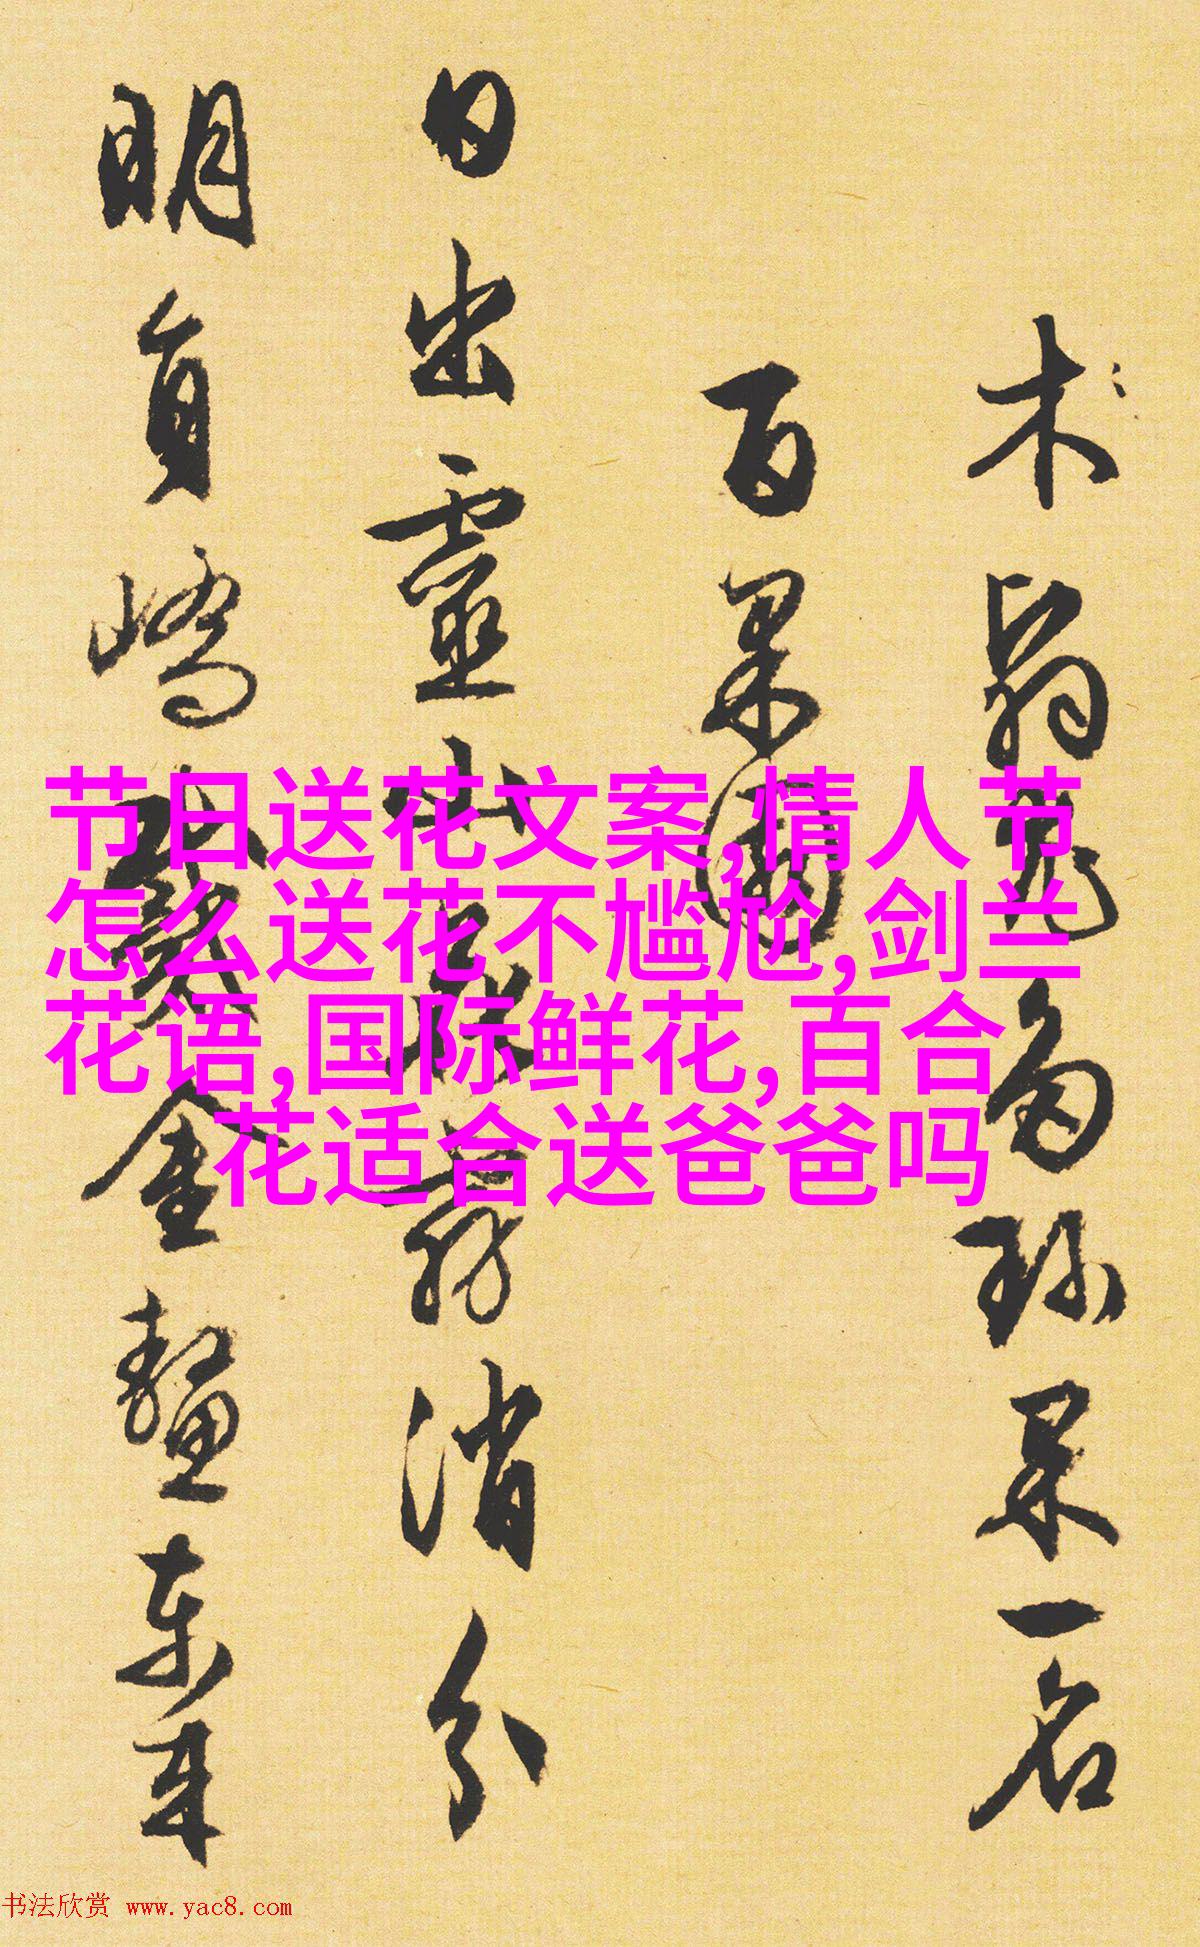 术翁儿为珎果一名
百果
日出灵
消分
明员峤
金鳌东来
节日送花文案,情人节
怎么送花不尴尬,剑兰
花语,国际鲜花,百合
花适合送爸爸吗
书法欣赏 www.yac8.com